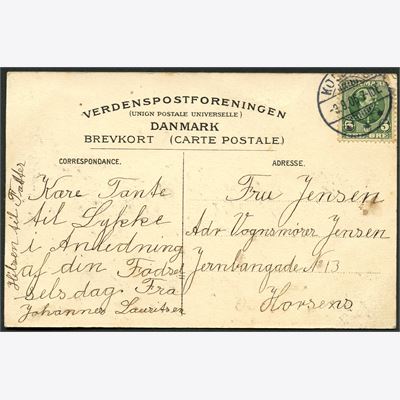 VERDENSPOSTFORENINGEN
(UNION POSTALE UNIVERSELLE)
DANMARK
BREVKORT (CARTE POSTALE.)
CORRESPONDANCE.
Kære Tante
til Lykke
i Anledning
af din Fødsel
selsdag. Fra
Johannes Lauritsen
Hilsen til Fatter
ADRESSE.
Fru Jensen
Adr Vognsmører Jensen
Jernbangade № 13
Horsens
5 5
ØRE